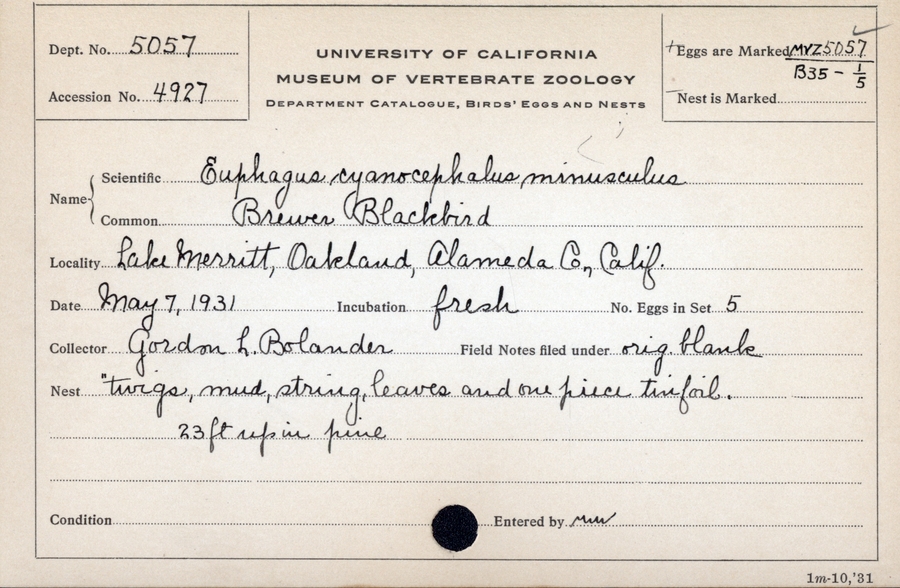 Dept. No. 5057
Accession No. 4927
UNIVERSITY OF CALIFORNIA
MUSEUM OF VERTEBRATE ZOOLOGY
DEPARTMENT CATALOGUE, BIRDS' EGGS AND NESTS
+Eggs are Marked MVZ5057
B35 - 1/5
-Nest is Marked
Name { Scientific Euphagus cyanocephalus minusculus
Common Brewer Blackbird
Locality Lake Merritt, Oakland, Alameda Co., Calif.
Date May 7, 1931 Incubation fresh No. Eggs in Set 5
Collector Gordon L. Bolander Field Notes filed under orig. blank
Nest "twigs, mud, string, leaves and one piece tinfoil.
23 ft up in pine
Condition Entered by
1m-10,'31